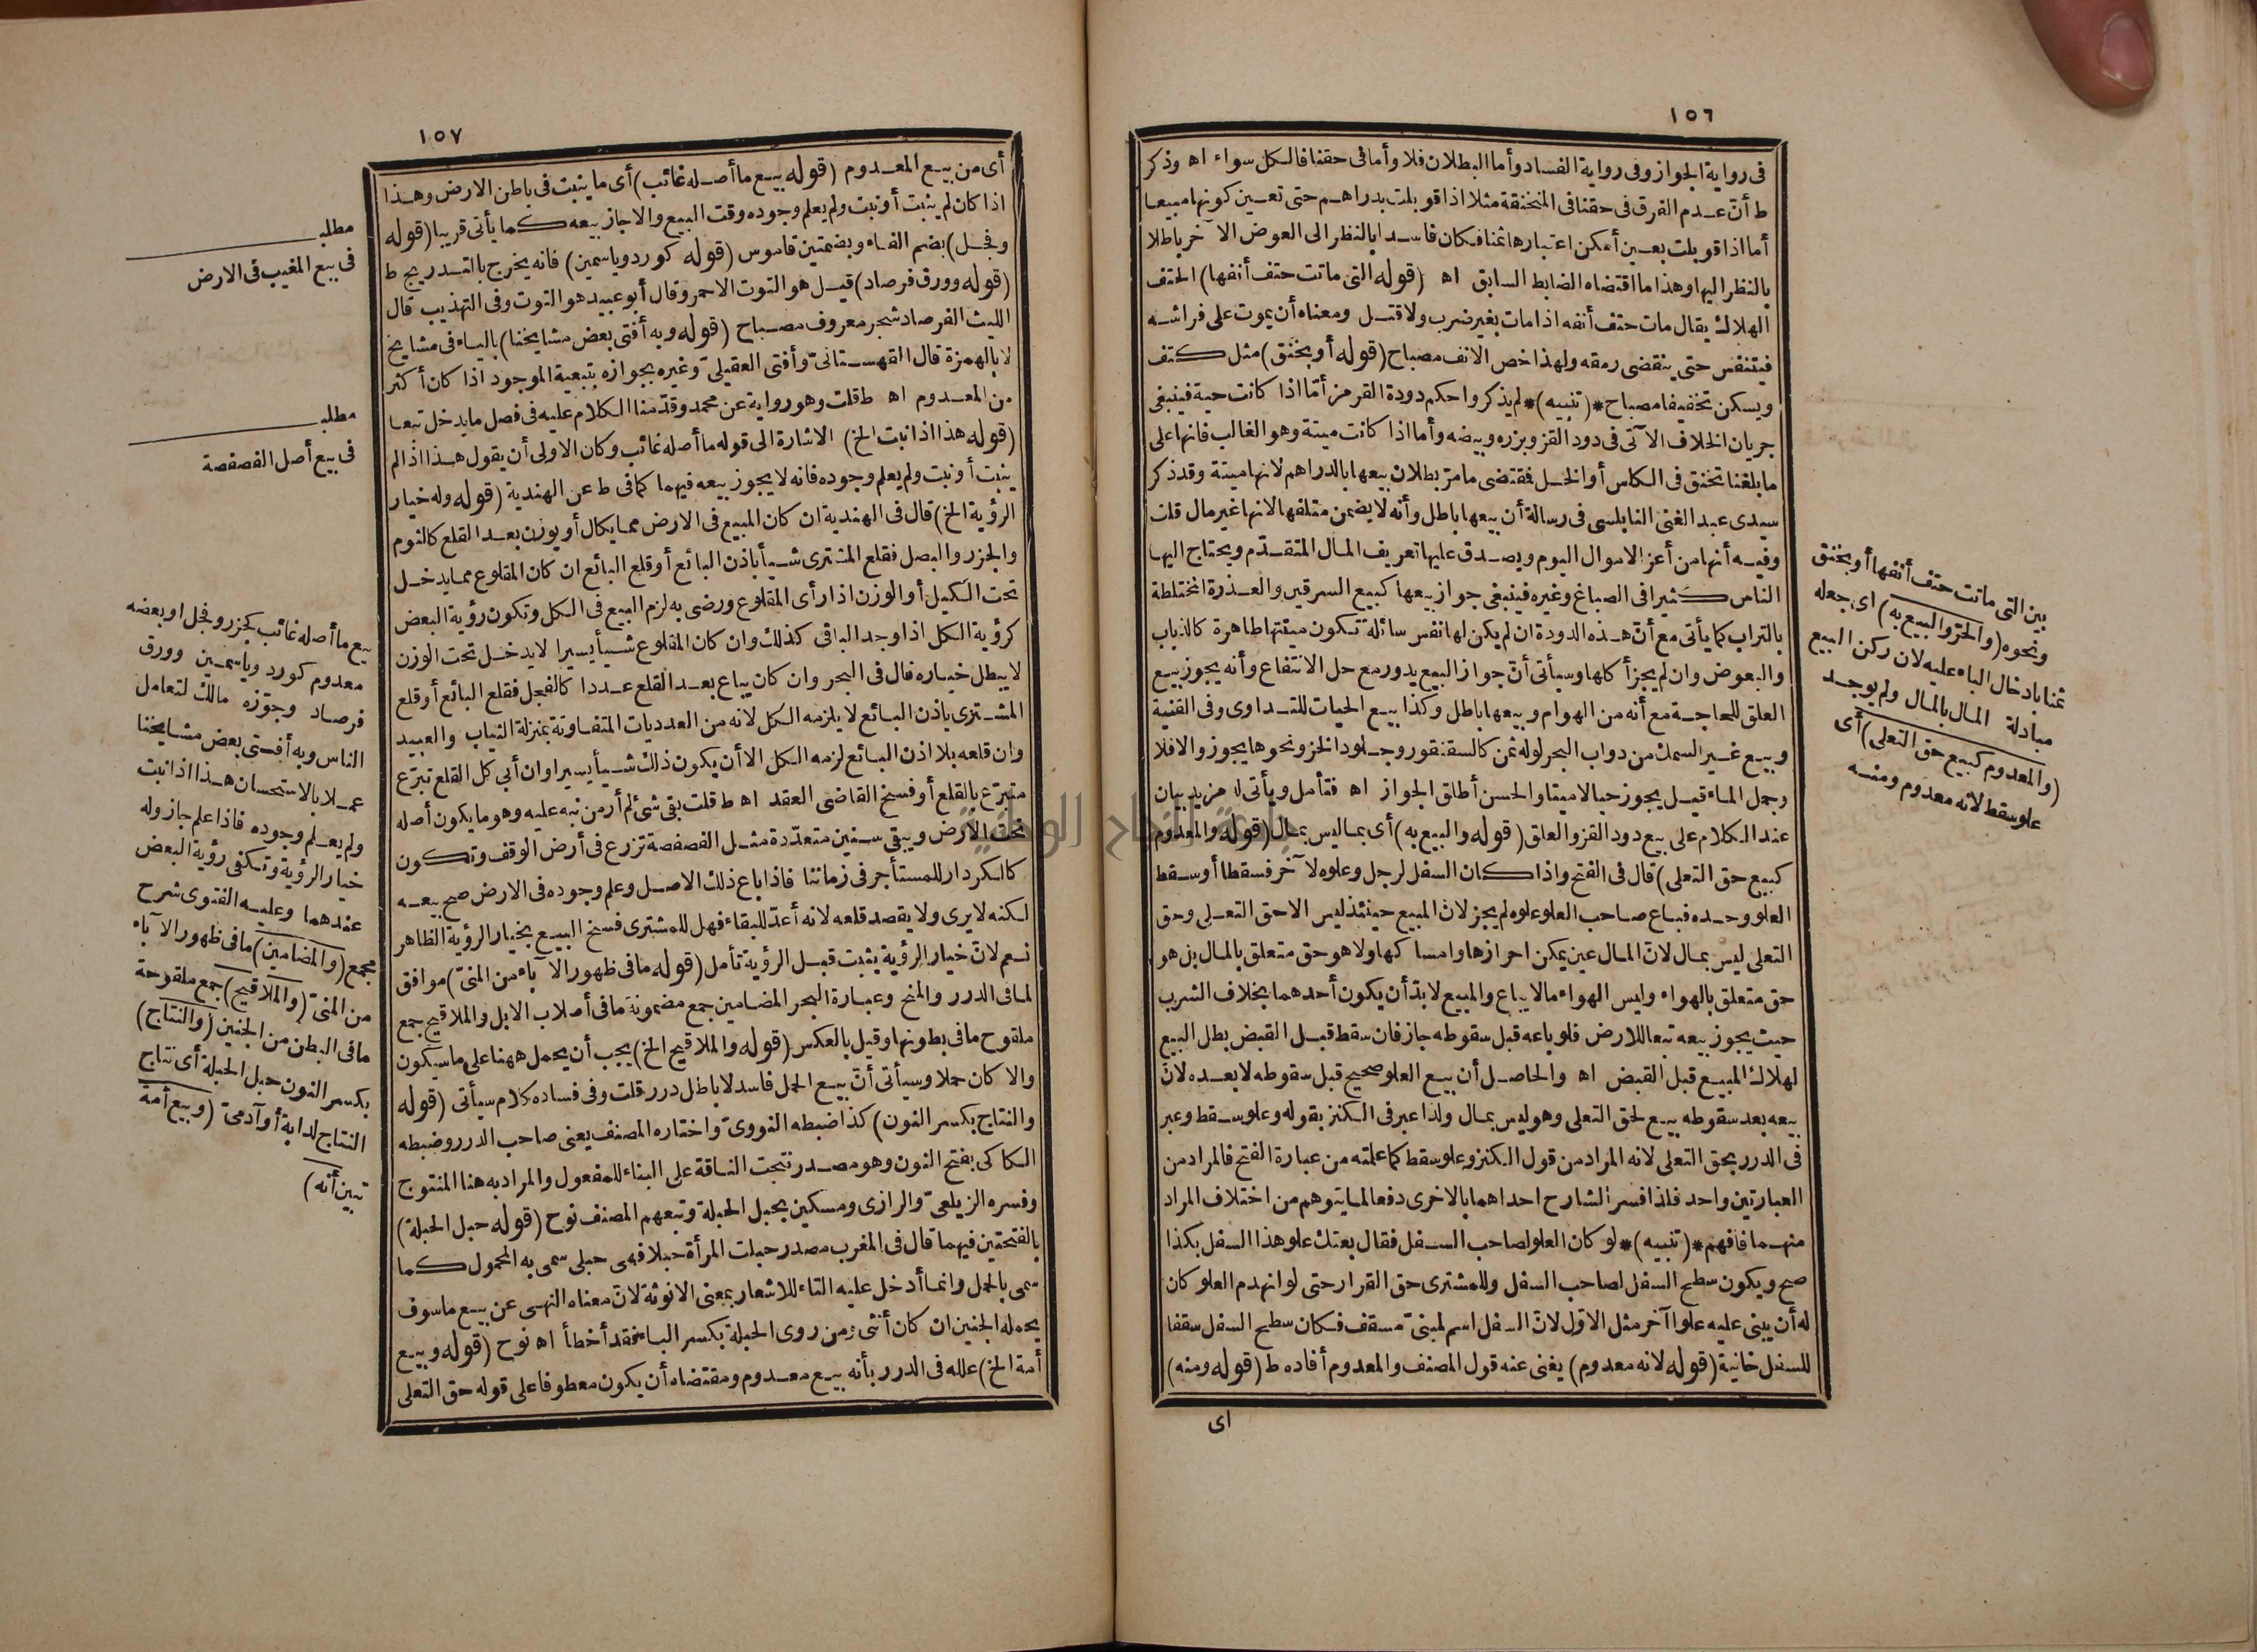 ١٥٦
فى رواية الجواز وفى رواية الفساد وأما البطلان فلا وأما فى حقنا فالكل سواء اه وذكر
ط أنّ عدم الفرق فى حقنا فى المنخنقة مثلا اذا قوبلت بدراهم حتى تعين كونها مبيعا
أما اذا قوبلت بعين أمكن اعتبارها ثمنا فكان فاسدا بالنظر الى العوض الآخر باطلا
بالنظر اليها وهذا ما اقتضاه الضابط السابق اه (قوله التى ماتت حتف أنفها) الحتف
الهلاك يقال مات حتف أنفه اذا مات بغير ضرب ولا قتل ومعناه أن يموت على فراشه
فيتنفس حتى ينقضى رمقه ولهذا خص الانف مصباح (قوله أو بخنق) مثل كتف
ويسكن تخفيفا مصباح *(تنبيه)* لم يذكروا حكم دودة القرمز أمّا اذا كانت حية فينبغى
جريان الخلاف الآتى فى دود القز وبزره وبيضه وأما اذا كانت ميتة وهو الغالب فانها على
ما بلغنا تخنق فى الكلس أو الخل فمقتضى ما مرّ بطلان بيعها بالدراهم لانها ميتة وقد ذكر
سيدى عبد الغنى النابلسى فى رسالة أن بيعها باطل وأنه لا يضمن متلفها لانها غير مال قلت
وفيه أنها من أعز الاموال اليوم ويصدق عليها تعريف المال المتقدّم ويحتاج اليها
الناس كثيرا فى الصباغ وغيره فينبغى جواز بيعها كبيع السرقين والعذرة المختلطة
بالتراب كما يأتى مع أنّ هذه الدودة ان لم يكن لها نفس سائلة تكون ميتتها طاهرة كالذباب
والبعوض وان لم يجز أكلها وسيأتى أنّ جواز البيع يدور مع حل الانتفاع وأنه يجوز بيع
العلق للحاجة مع أنه من الهوام وبيعها باطل وكذا بيع الحيات للتداوى وفى القنية
وبيع غير السمك من دواب البحر لو له ثمن كالسقنقور وجلود الخز ونحوها يجوز والا فلا
وجمل الماء قيل يجوز حيا لا ميتا والحسن أطلق الجواز اه فتأمل ويأتى له مزيد بيان
عند الكلام على بيع دود القز والعلق (قوله والبيع به) أى بما ليس بمال (قوله والمعدوم
كبيع حق التعلى) قال فى الفتح واذا كان السفل لرجل وعلوه لآخر فسقطا أو سقط
العلو وحده فباع صاحب العلو علوه لم يجز لانّ المبيع حينئذ ليس الا حق التعلى وحق
التعلى ليس بمال لانّ المال عين يمكن احرازها وامساكها ولا هو حق متعلق بالمال بل هو
حق متعلق بالهواء وليس الهواء مالا يباع والمبيع لا بدّ أن يكون أحدهما بخلاف الشرب
حيث يجوز بيعه تبعا للارض فلو باعه قبل سقوطه جاز فان سقط قبل القبض بطل البيع
لهلاك المبيع قبل القبض اه والحاصل أن بيع العلو صحيح قبل سقوطه لا بعده لانّ
بيعه بعد سقوطه بيع لحق التعلى وهو ليس بمال ولذا عبر فى الكنز بقوله وعلو سقط وعبر
فى الدرر بحق التعلى لانه المراد من قول الكنز وعلو سقط كما علمته من عبارة الفتح فالمراد من
العبارتين واحد فلذا فسر الشارح احداهما بالاخرى دفعا لما يتوهم من اختلاف المراد
منهما فافهم *(تنبيه)* لو كان العلو لصاحب السفل فقال بعتك علو هذا السفل بكذا
صح ويكون سطح السفل لصاحب السفل وللمشترى حق القرار حتى لو انهدم العلو كان
له أن يبنى عليه علوا آخر مثل الاوّل لانّ السفل اسم لمبنىّ مسقف فكان سطح السفل سقفا
للسفل خانية (قوله لانه معدوم) يغنى عنه قول المصنف والمعدوم أفاده ط (قوله ومنه)
اى
بين التى ماتت حتف أنفها أو بخنق
ونحوه (والحرّ والبيع به) اى جعله
ثمنا بادخال الباء عليه لان ركن البيع
مبادلة المال بالمال ولم يوجد
(والمعدوم كبيع حق التعلى) أى
علو سقط لانه معدوم ومنه
١٥٧
أى من بيع المعدوم (قوله بيع ما أصله غائب) أى ما ينبت فى باطن الارض وهذا
اذا كان لم ينبت أو نبت ولم يعلم وجوده وقت البيع والا جاز بيعه كما يأتى قريبا (قوله
وفجل) بضم الفاء وبضمتين قاموس (قوله كورد وياسمين) فانه يخرج بالتدريج ط
(قوله وورق فرصاد) قيل هو التوت الاحمر وقال أبو عبيد هو التوت وفى التهذيب قال
الليث الفرصاد شجر معروف مصباح (قوله وبه أفتى بعض مشايخنا) بالياء فى مشايخ
لا بالهمزة قال القهستانىّ وأفتى العقيلىّ وغيره بجوازه بتبعية الموجود اذا كان أكثر
من المعدوم اه ط قلت وهو رواية عن محمد وقدّمنا الكلام عليه فى فصل ما يدخل تبعا
(قوله هذا اذا نبت الخ) الاشارة الى قوله ما أصله غائب وكان الاولى أن يقول هذا اذا لم
ينبت أو نبت ولم يعلم وجوده فانه لا يجوز بيعه فيهما كما فى ط عن الهندية (قوله وله خيار
الرؤية الخ) قال فى الهندية ان كان المبيع فى الارض مما يكال أو يوزن بعد القلع كالثوم
والجزر والبصل فقلع المشترى شيأ باذن البائع أو قلع البائع ان كان المقلوع مما يدخل
تحت الكيل أو الوزن اذا رأى المقلوع ورضى به لزم البيع فى الكل وتكون رؤية البعض
كرؤية الكل اذا وجد الباقى كذلك وان كان المقلوع شيأ يسيرا لا يدخل تحت الوزن
لا يبطل خياره قال فى البحر وان كان يباع بعد القلع عددا كالفجل فقلع البائع أو قلع
المشترى باذن البائع لا يلزمه الكل لانه من العدديات المتفاوتة بمنزلة الثياب والعبيد
وان قلعه بلا اذن البائع لزمه الكل الا أن يكون ذلك شيأ يسيرا وان أبى كل القلع تبرّع
متبرّع بالقلع أو فسخ القاضى العقد اه ط قلت بقى شئ لم أر من نبه عليه وهو ما يكون أصله
تحت الارض ويبقى سنين متعدّدة مثل الفصفصة تزرع فى أرض الوقف وتكون
كالكردار للمستأجر فى زماننا فاذا باع ذلك الاصل وعلم وجوده فى الارض صح بيعه
لكنه لا يرى ولا يقصد قلعه لانه أعدّ للبقاء فهل للمشترى فسخ البيع بخيار الرؤية الظاهر
نعم لانّ خيار الرؤية يثبت قبل الرؤية تأمل (قوله ما فى ظهور الآباء من المنىّ) موافق
لما فى الدرر والمنح وعبارة البحر المضامين جمع مضمونة ما فى أصلاب الابل والملاقيح جمع
ملقوح ما فى بطونها وقيل بالعكس (قوله والملاقيح الخ) يجب أن يحمل ههنا على ما سيكون
والا كان حملا وسيأتى أنّ بيع الحمل فاسد لا باطل درر قلت وفى فساده كلام سيأتى (قوله
والنتاج بكسر النون) كذا ضبطه النووىّ واختاره المصنف يعنى صاحب الدرر وضبطه
الكاكى بفتح النون وهو مصدر نتجت الناقة على البناء للمفعول والمراد به هنا المنتوج
وفسره الزيلعىّ والرازى ومسكين بحبل الحبلة وتبعهم المصنف نوح (قوله حبل الحبلة)
بالفتحتين فيهما قال فى المغرب مصدر حبلت المرأة حبلا فهى حبلى سمى به المحمول كما
سمى بالحمل وانما أدخل عليه التاء للاشعار بمعنى الانوثة لانّ معناه النهى عن بيع ما سوف
يحمله الجنين ان كان أنثى ومن روى الحبلة بكسر الباء فقد أخطأ اه نوح (قوله وبيع
أمة الخ) علله فى الدرر بأنه بيع معدوم ومقتضاه أن يكون معطوفا على قوله حق التعلى
مطلب
فى بيع المغيب فى الارض
مطلب
فى بيع أصل الفصفصة
بيع ما أصله غائب كجزر وفجل او بعضه
معدوم كورد وياسمين وورق
فرصاد وجوّزه مالك لتعامل
الناس وبه أفتى بعض مشايخنا
عملا بالاستحسان هذا اذا نبت
ولم يعلم وجوده فاذا علم جاز وله
خيار الرؤية وتكفى رؤية البعض
عندهما وعليه الفتوى شرح
مجمع (والمضامين) ما فى ظهور الآباء
من المنىّ (والملاقيح) جمع ملقوحة
ما فى البطن من الجنين (والنتاج)
بكسر النون حبل الحبلة أى نتاج
النتاج لدابة أو آدمىّ (وبيع أمة
تبين أنه)